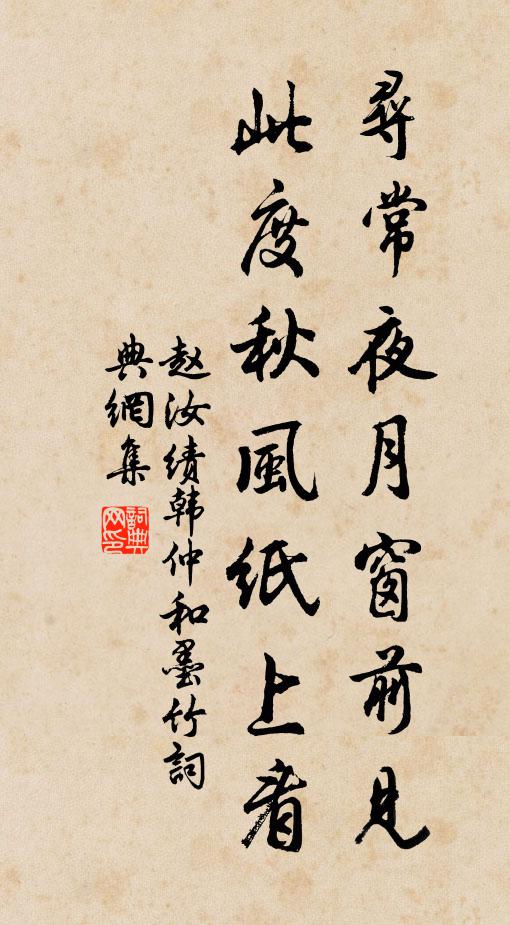 尋常夜月窗前見
此度秋風紙上看
赵汝绩韩仲和墨竹詞
典網集
詞典網印